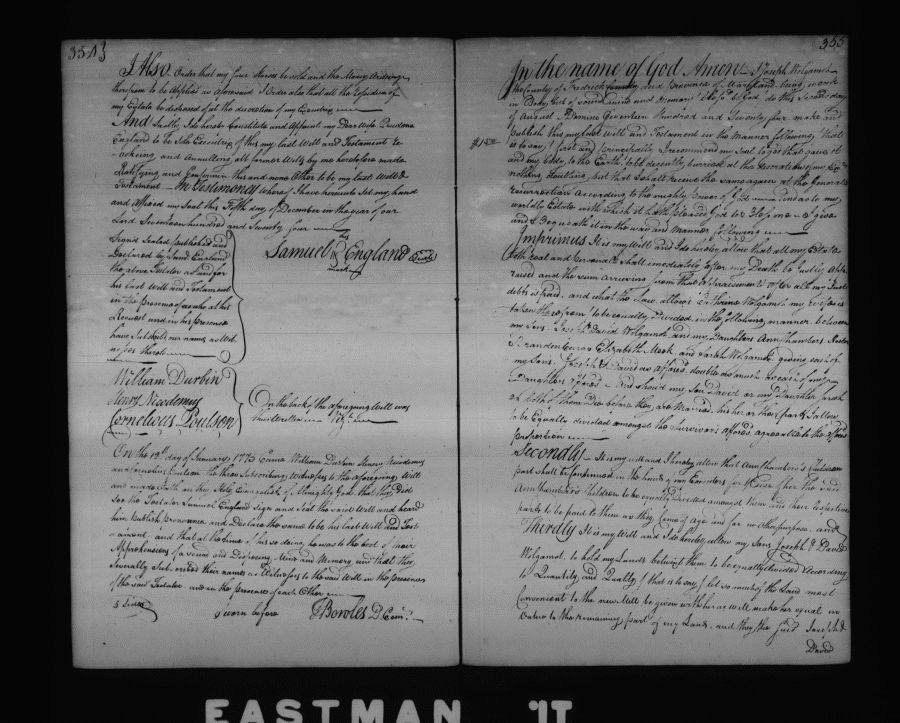 354}
I Also Order that my four Horses be sold and the Money Ariding
therefrom to be Applied as aforesaid I order also that all the Residue of
my Estate to be disposed of at the discretion of my Executrix
And Lastly I do hereby Constitute and Appoint my Dear Wife Prudence
England to be Sole Executrix of this my last Will and Testament re-
-vokeing and Annulling all former Wills by me heretofore made
Ratifying and Confirming this and none Other to be my last Will &
Testament In Testimony where of I have hereunto Set my hand
and affixed my Seal this Fifth day of December in the year of our
Lord Seventeen hundred and Seventy four
Signd Sealed published and
Declared by Samuel England
the above Testator as and for
his last Will and Testament
in the Presence of us who at his
Request and in his presence
have Subscribed our names as Wit
nesses thereto
his
Samuel England Seal
mark
William Durbin
Henry Nicodemus
Cornelious Poulson
On the back of the aforegoing Will was
thus Written Viz
On the 12th day of January 1775 Came William Durbin Henry Nicodemus
and Cornelius Poulson the three Subscribing witnesses to the aforegoing Will
and made Oath on the Holy Evangelists of Almighty God that they Did
See the Testator Samuel England Sign and Seal the said Will and heard
him Publish Pronounce and Declare the same to be his last Will and Test
-ament and that at the time of his so doing he was to the best of their
Apprehensions of a sound and Disposing Mind and Memory and that they
Severally Subscribed their names as Witnesses to the said Will in the Presence
of the said Testator and in the Presence of each Other
5 Sides
Sworn before
Bowles D Com
355
In the name of God Amen I Joseph Wolgamot
the County of Frederick and Province of Maryland being weak
in Body but of sound mind and memory blessed be God do this Second day
of August Domini Seventeen Hundred and Seventy four make and
publish this my last will and Testament in the Manner following That
is to say first and principally I recommend my Soul to God that gave it
and my body to the Earth to be decently burried at the discretion of my Exrs
nothing doubting but I shall receive the same again at the general
resurrection according to the mighty Power of God and as to my
worldly Estate with which it hath pleased God to bless me I give
and Bequeath it in the way and manner following
Imprimus It is my Will and I do hereby allow that all my Estate
both real and personal shall imediately after my Death be Justly app
raised and the sum arriveing from that appraisement after all my Just
debts is paid and what the Law allows Catherine Wolgamot my Wife is
taken therefrom to be equally Divided in the following manner between
my Sons Joseph & David Wolgamot and my Daughters Ann Chambers
Elizabeth and Sarah Wolgamot giving each of
my Sons Joseph & David as affores'd double as much as each of my
Daughters affores'd And should my Son David or my Daughter Sarah
or both of them Die before they are Married his her or their part I allow
to be Equally divided amongst the Survivors affores'd agreeable to the affores'd
proportion
Secondly It is my will and I hereby allow that Ann Chambers
part shall be in the hands of my Executors for the use of her the said
Ann Chambers Children to be equally divided amongst them and their respective
parts to be paid to them as they Come of age and for no other purpose and
Thirdly It is my Will and I do hereby allow my Sons Joseph & David
Wolgamot to hold my Lands betwixt them to be equally divided according
to Quantity and Quality that is to say let so much of the Land most
Convenient to the new Mill be given with her as will make her equal in
Value to the remaining part of my Land and they the said Joseph &
David
EASTMAN